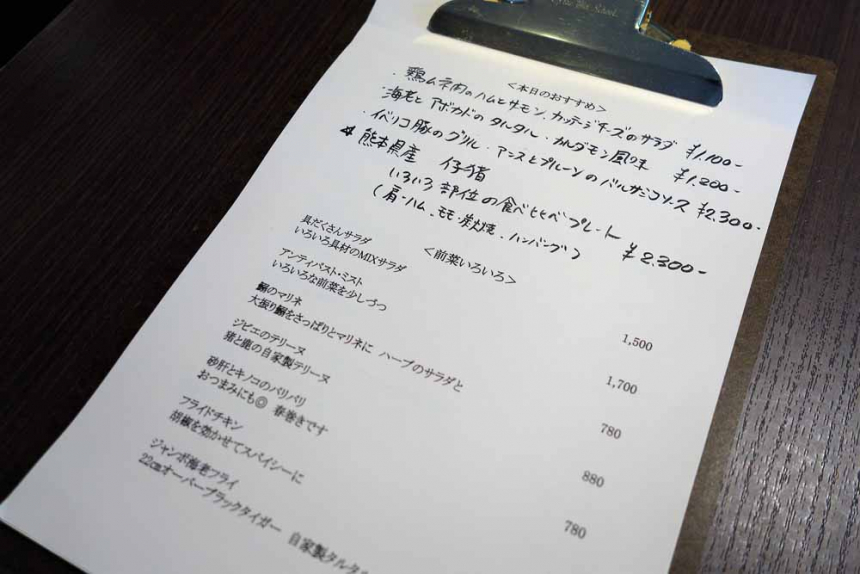 <本日のおすすめ>
・鶏ムネ肉のハムとサーモン、カッテージチーズのサラダ ¥1,100-
・海老とアボカドのタルタル・カルダモン風味 ¥1,200-
・イベリコ豚のグリル・アンスとプルーンのバルサミコソース ¥2,300-
熊本県産 仔猪
いろいろ部位の食べ比べプレート ¥2,300-
(肩ーハム、モモ炭焼、ハンバーグ)
<前菜いろいろ>
具だくさんサラダ
いろいろ具材のMIXサラダ 1,500
アンティパスト・ミスト
いろいろな前菜を少しづつ 1,700
鰯のマリネ
大振り鰯をさっぱりとマリネに ハーブのサラダと 780
ジビエのテリーヌ
猪と鹿の自家製テリーヌ 880
砂肝とキノコのパリパリ
おつまみにも◎ 春巻きです 780
フライドチキン
胡椒を効かせてスパイシーに
ジャンボ海老フライ
22cmオーバーブラックタイガー 自家製タルタ